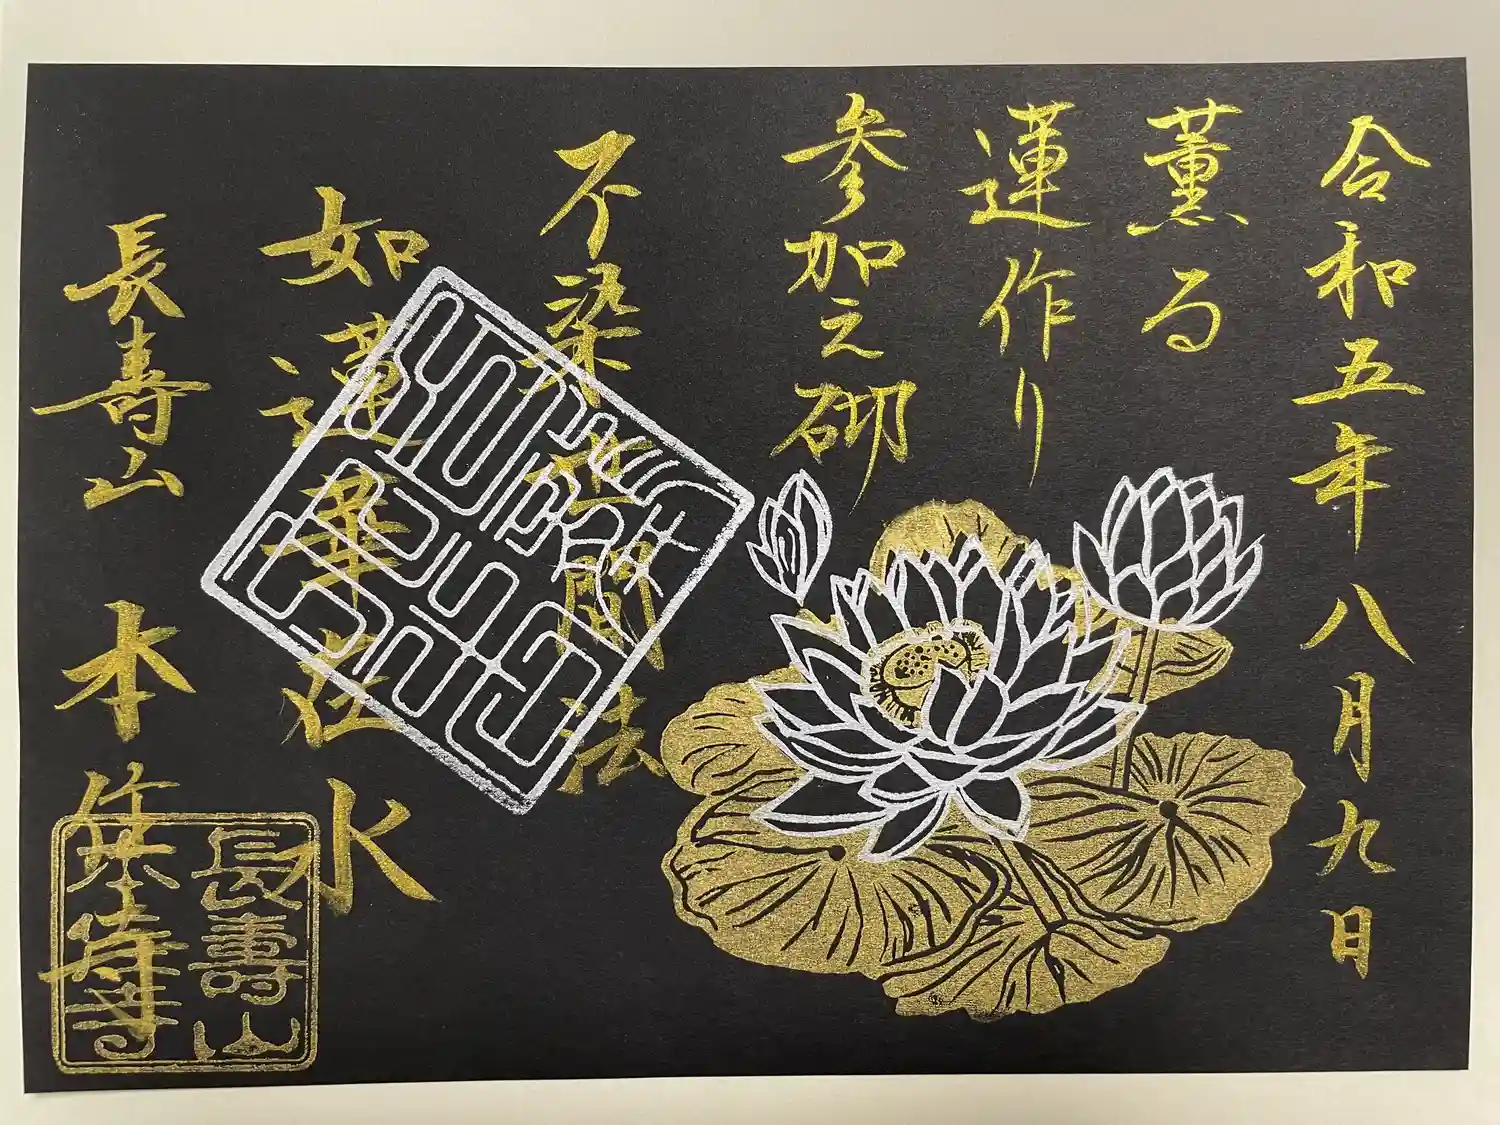 令和五年八月九日
薫る
蓮作り
参加之砌
不染世間法
如蓮華在水
長寿山 本
長壽山